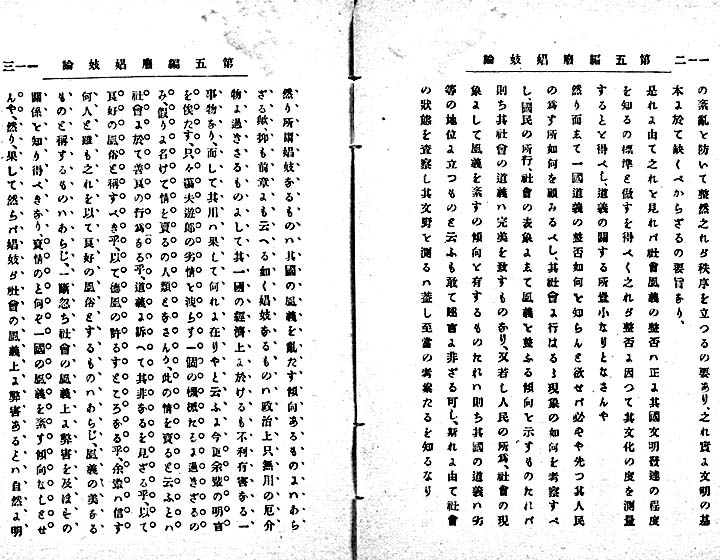 一一二 第五編廢娼妓論
の紊亂を防いて整然之れが秩序を立つるの要あり、之れ實に文明の基
本に於て缺くべからざるの要旨なり、
是れに由て之れを見れバ社會風義の整否ハ正に其國文明發達の程度
を知るの標準と做すを得べく之れが整否に因つて其文化の度を測量
するとを得べし、道義の關する所豈小なりとなさんや
然り而して一國道義の整否如何を知らんと欲せバ必やや先つ其人民
の爲す所如何を顧みるべし、其社會に行はるゝ現象の如何を考察すべ
し、國民の所行社會の表象にして風義を整ふる傾向を示すものたれバ
則ち其社會の道義ハ完美を致すものなり、又若し人民の所爲、社會の現
象にして風義を紊すの傾向を有するものたれハ則ち其國の道義ハ劣
等の地位に立つものと云ふも敢て過言に非ざる可し、斯れに由て社會
の狀態を査察し其文野を測るハ蓋し至當の考案たるを知るなり
一一三 第五編廢娼妓論
然り所謂娼妓なるものハ其國の風義を亂たす傾向あるものにハあら
ざる歟、抑も前章にも云へる如く娼妓なるものハ政治上只無用の厄介
物に過きさるものにして其一國の經濟上に於けるも不利有害なる一
事物なり、而して其用ハ果して何れに在りやと云ふに今更余輩の明言
を俟たす、只々蕩夫遊郎の劣情を洩らす一個の機械たるに過きざるの
み、假りに名けて情を賣るの人類とをさんう、此の情を賣ると云ふとハ
社會に於て善良の行爲なる乎、道義に訴へて其非なるを見ざる乎、以て
良好の風俗と稱すべき乎、以て德風の許るすところなる乎、余輩ハ信す
何人と雖も之れを以て良好の風俗とするものハあらじ、風義の美なる
ものと稱するものハあらじ、一斷忽ち社會の風義上に弊害を及ほすの
關係を知り得べきなり、賣情のと何ぞ一國の風義を紊す傾向なしとせ
んや、然り、果して然らバ娼妓が社會の風義上に弊害あるとハ自然に明